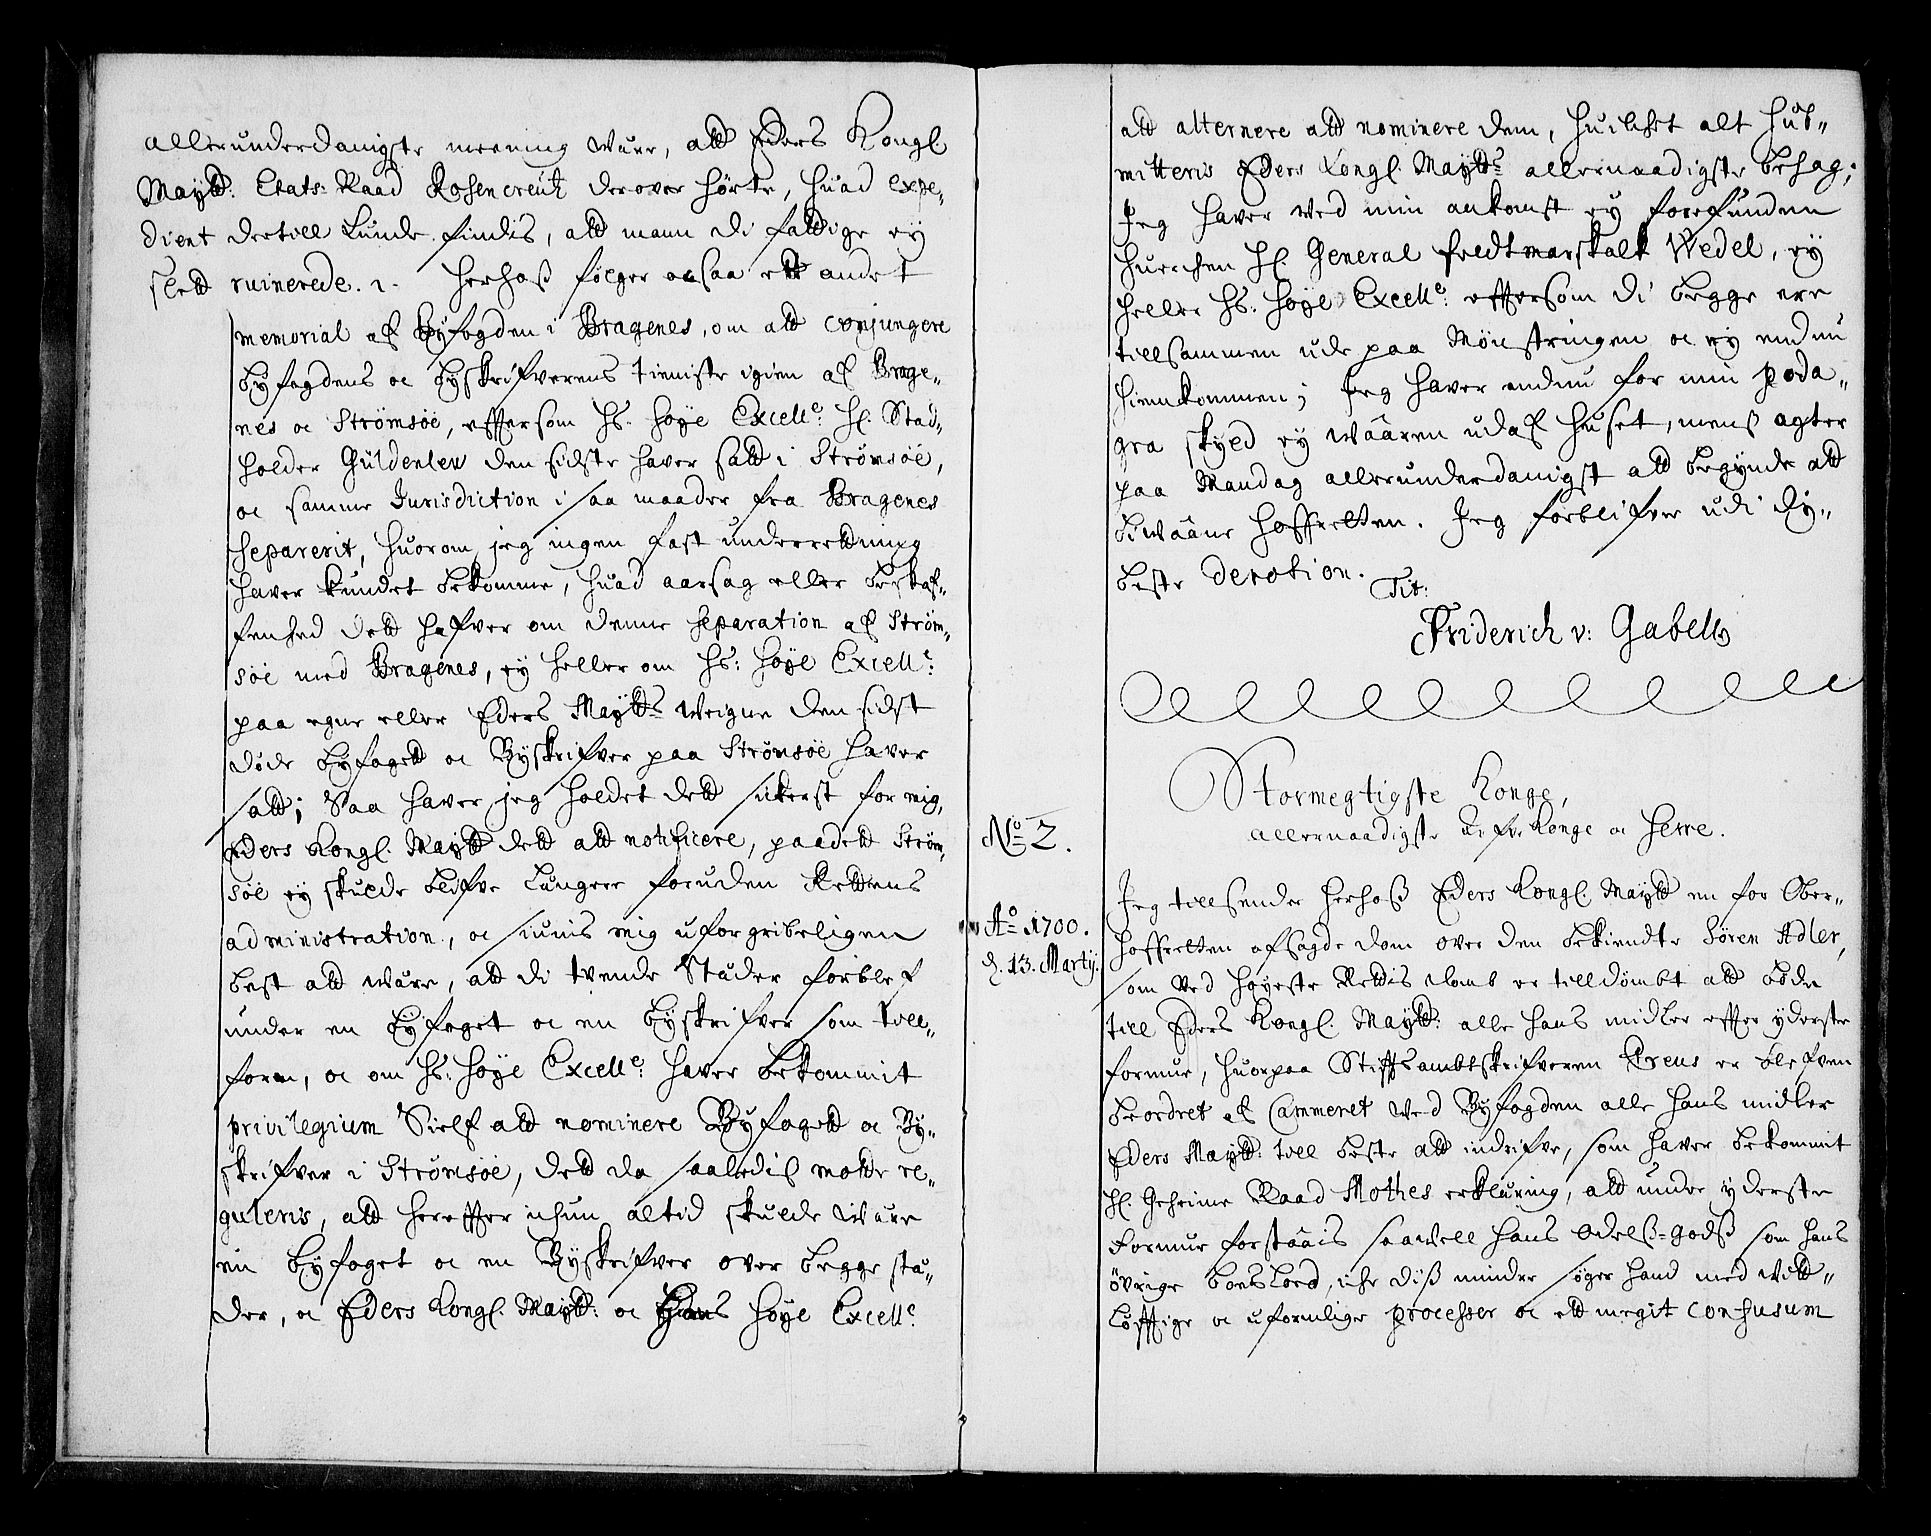 allerunderdanigste meening wure, att Eders Kongl.
Maytt: Etats-Raad Rosencreutz derover hørte, huad expe-
dient dertill kunde findis, att mann di fattige ey
slett ruinerede. Herhoß følger ocsaa ett andet
memorial af Byfogden i Bragenes, om att conjungere
byfogdens oc byskrifverens tieniste igien af Brage-
nes oc Strømsøe, effersom Hs. høye Excelle: Hl. Stad-
holder Güldenlew den sidste haver satt i Strømsøe,
oc samme Jurisdiction i saa maader fra Bragenes
seperert, huorom jeg ingen fast underretning
haver kundet bekomme, huad aarsag eller beskaf-
fenhed dett hafver om denne separation af Strøm-
søe med Bragenes, ey heller om Hs: høye Excelle:
paa egne eller Eders Maytts Weigne den sidst
døde byfogett oc Byskrifver paa Strømsøe haver
satt; Saa haver jeg holdet dett sikerst for mig,
Eders Kongl. Maytt dett att notificere, paadett Strøm-
søe ey skulde blifve lunger foruden Rettens
administration, oc siunis mig uforgribeligen
best att wære, att di tvende Stæder forblef
under en byfoget oc en byskrifver som till-
forn, oc om Hs: høye Excelle: haver bekommit
privilegium Sielf att nominere Byfogett oc By-
skrifver i Strømsøe, dett da saaledis motte re-
guleris, att hereffter ichun altid skulde wære
en byfoget oc en Byskrifver over begge stæ-
der, oc Eders Kongl. Maytt: oc Hans høye Excelle:
att alternere att nominere dem, huilchet alt sub-
mitteris Eders Kongl. Maytts allernaadigste behag;
Jeg haver ved min ankomst ey forefunden
huerchen Hl. General feldtmarskalk Wedel, ey
heller Hs. høye Excelle: effersom di begge ere
tillsammen ude paa Mønstringen oc ey endnu
hiemkommen; Jeg haver endnu for min poda-
gra skyld ey wæren udaf huset, mens agter
paa Mandag allerunderdanigst att begynde att
biwaane hofretten. Jeg forblifver udi dy-
beste devotion.
Tit:
Friderich v: Gabell
No 2.
Ao 1700.
d. 13. Martij.
Stormegtigste Konge,
allernaadigste Arfve Konge oc Herre.
Jeg tillsender herhoß Eders Kongl. Maytt en for Ober-
hofretten afsagde dom over den bekiendte Søren Adler,
som ved høyeste Rettis domb er tilldømbt att bøde
till Eders Kongl. Maytt: alle hans midler effter yderste
formue, huorpaa Stiffsambtskrifveren Kreus er blefven
beordret af Cammeret wed Byfogden alle hans midler
Eders Maytt: till beste att indrifve, som haver bekommit
Hl. Geheime Raad Mothes erklæring, att under yderste
formue forstaais saavell hans Odelß-godß som hans
øvrige boeslod, iche diß minder søger hand med vitt-
løfftige oc uformlige processer oc ett megit confusum